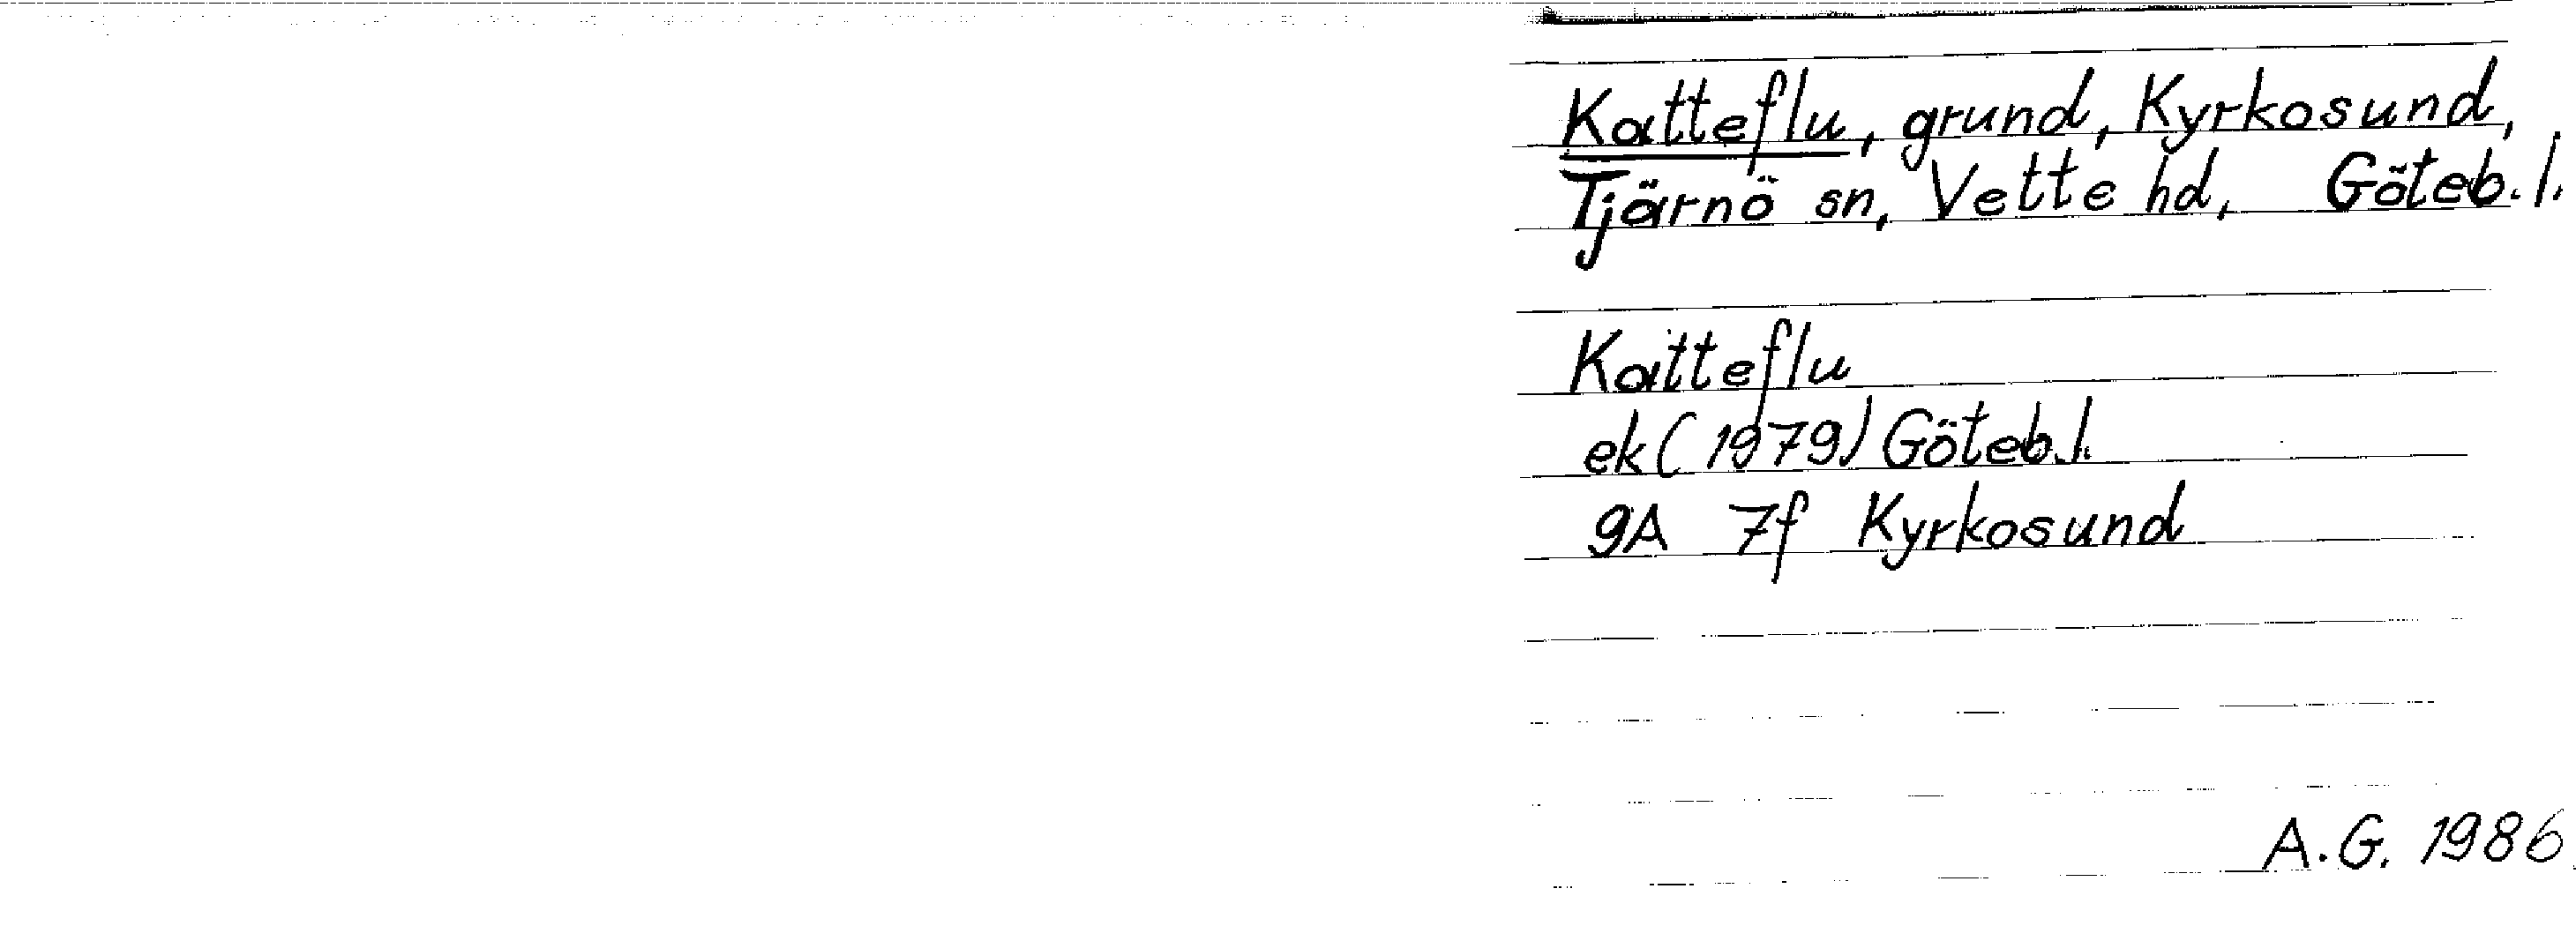 Katteflu, grund, Kyrkosund,
Tjärnö sn, Vette hd, Göteb. l.
Katteflu
ek (1979) Göteb.l.
9A 7f Kyrkosund
A.G. 1986